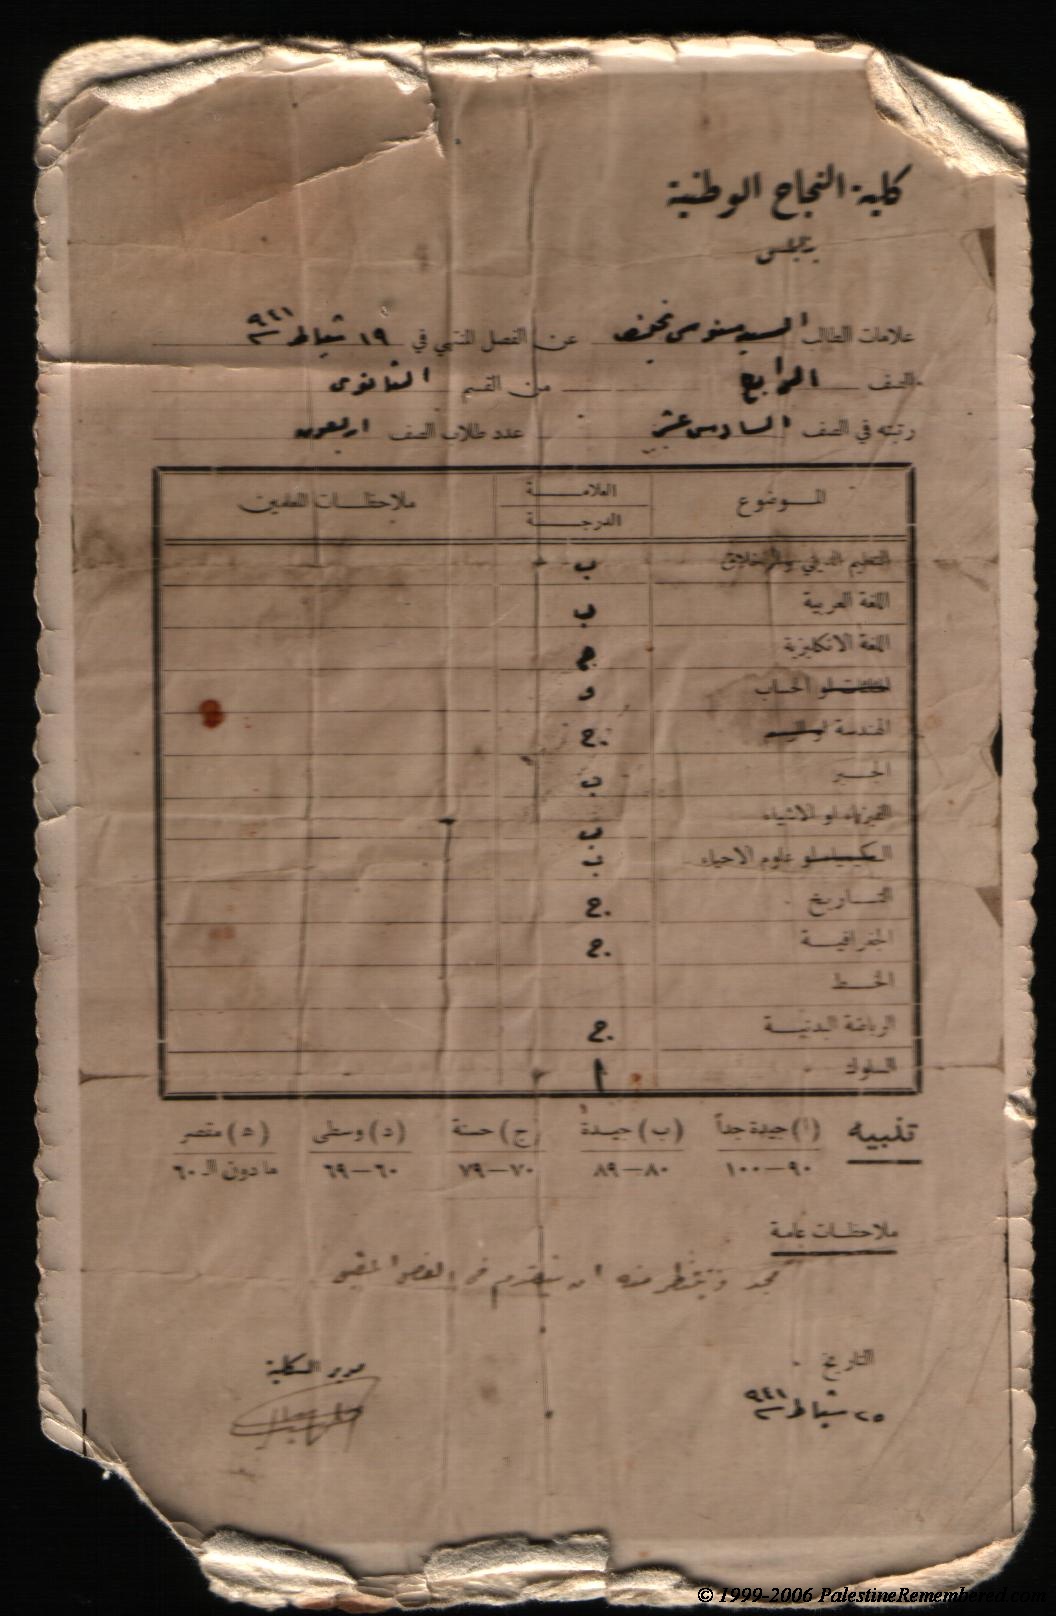 كلية النجاح الوطنية
بنابلس
علامات الطالب السيد عن الفصل المنتهي في ١٩ شباط سنة ٩٤١
الصف الرابع من القسم الثانوي
رتبته في الصف السادس عشر عدد طلاب الصف اربعون
الموضوع العلامة ملاحظات المعلمين
الدرجة
التعليم الديني والاخلاق ب
اللغة العربية ب
اللغة الانكليزية ج
المثلثات او الحساب د
الهندسة او ج
الجبر ب
الفيزياء او الاشياء ب
الكيمياء او علوم الاحياء ب
التاريخ ج
الجغرافية ج
الخط
الرياضة البدنية ج
السلوك ا
تنبيه (ا) جيدة جداً (ب) جيدة (ج) حسنة (د) وسطى (ه) مقصر
٩٠–١٠٠ ٨٠–٨٩ ٧٠–٧٩ ٦٠–٦٩ ما دون الـ ٦٠
ملاحظات عامة
مجد وينتظر منه ان يتقدم في الفصل المقبل
التاريخ مدير الكلية
٢٥ شباط سنة ٩٤١
© 1999-2006 PalestineRemembered.com